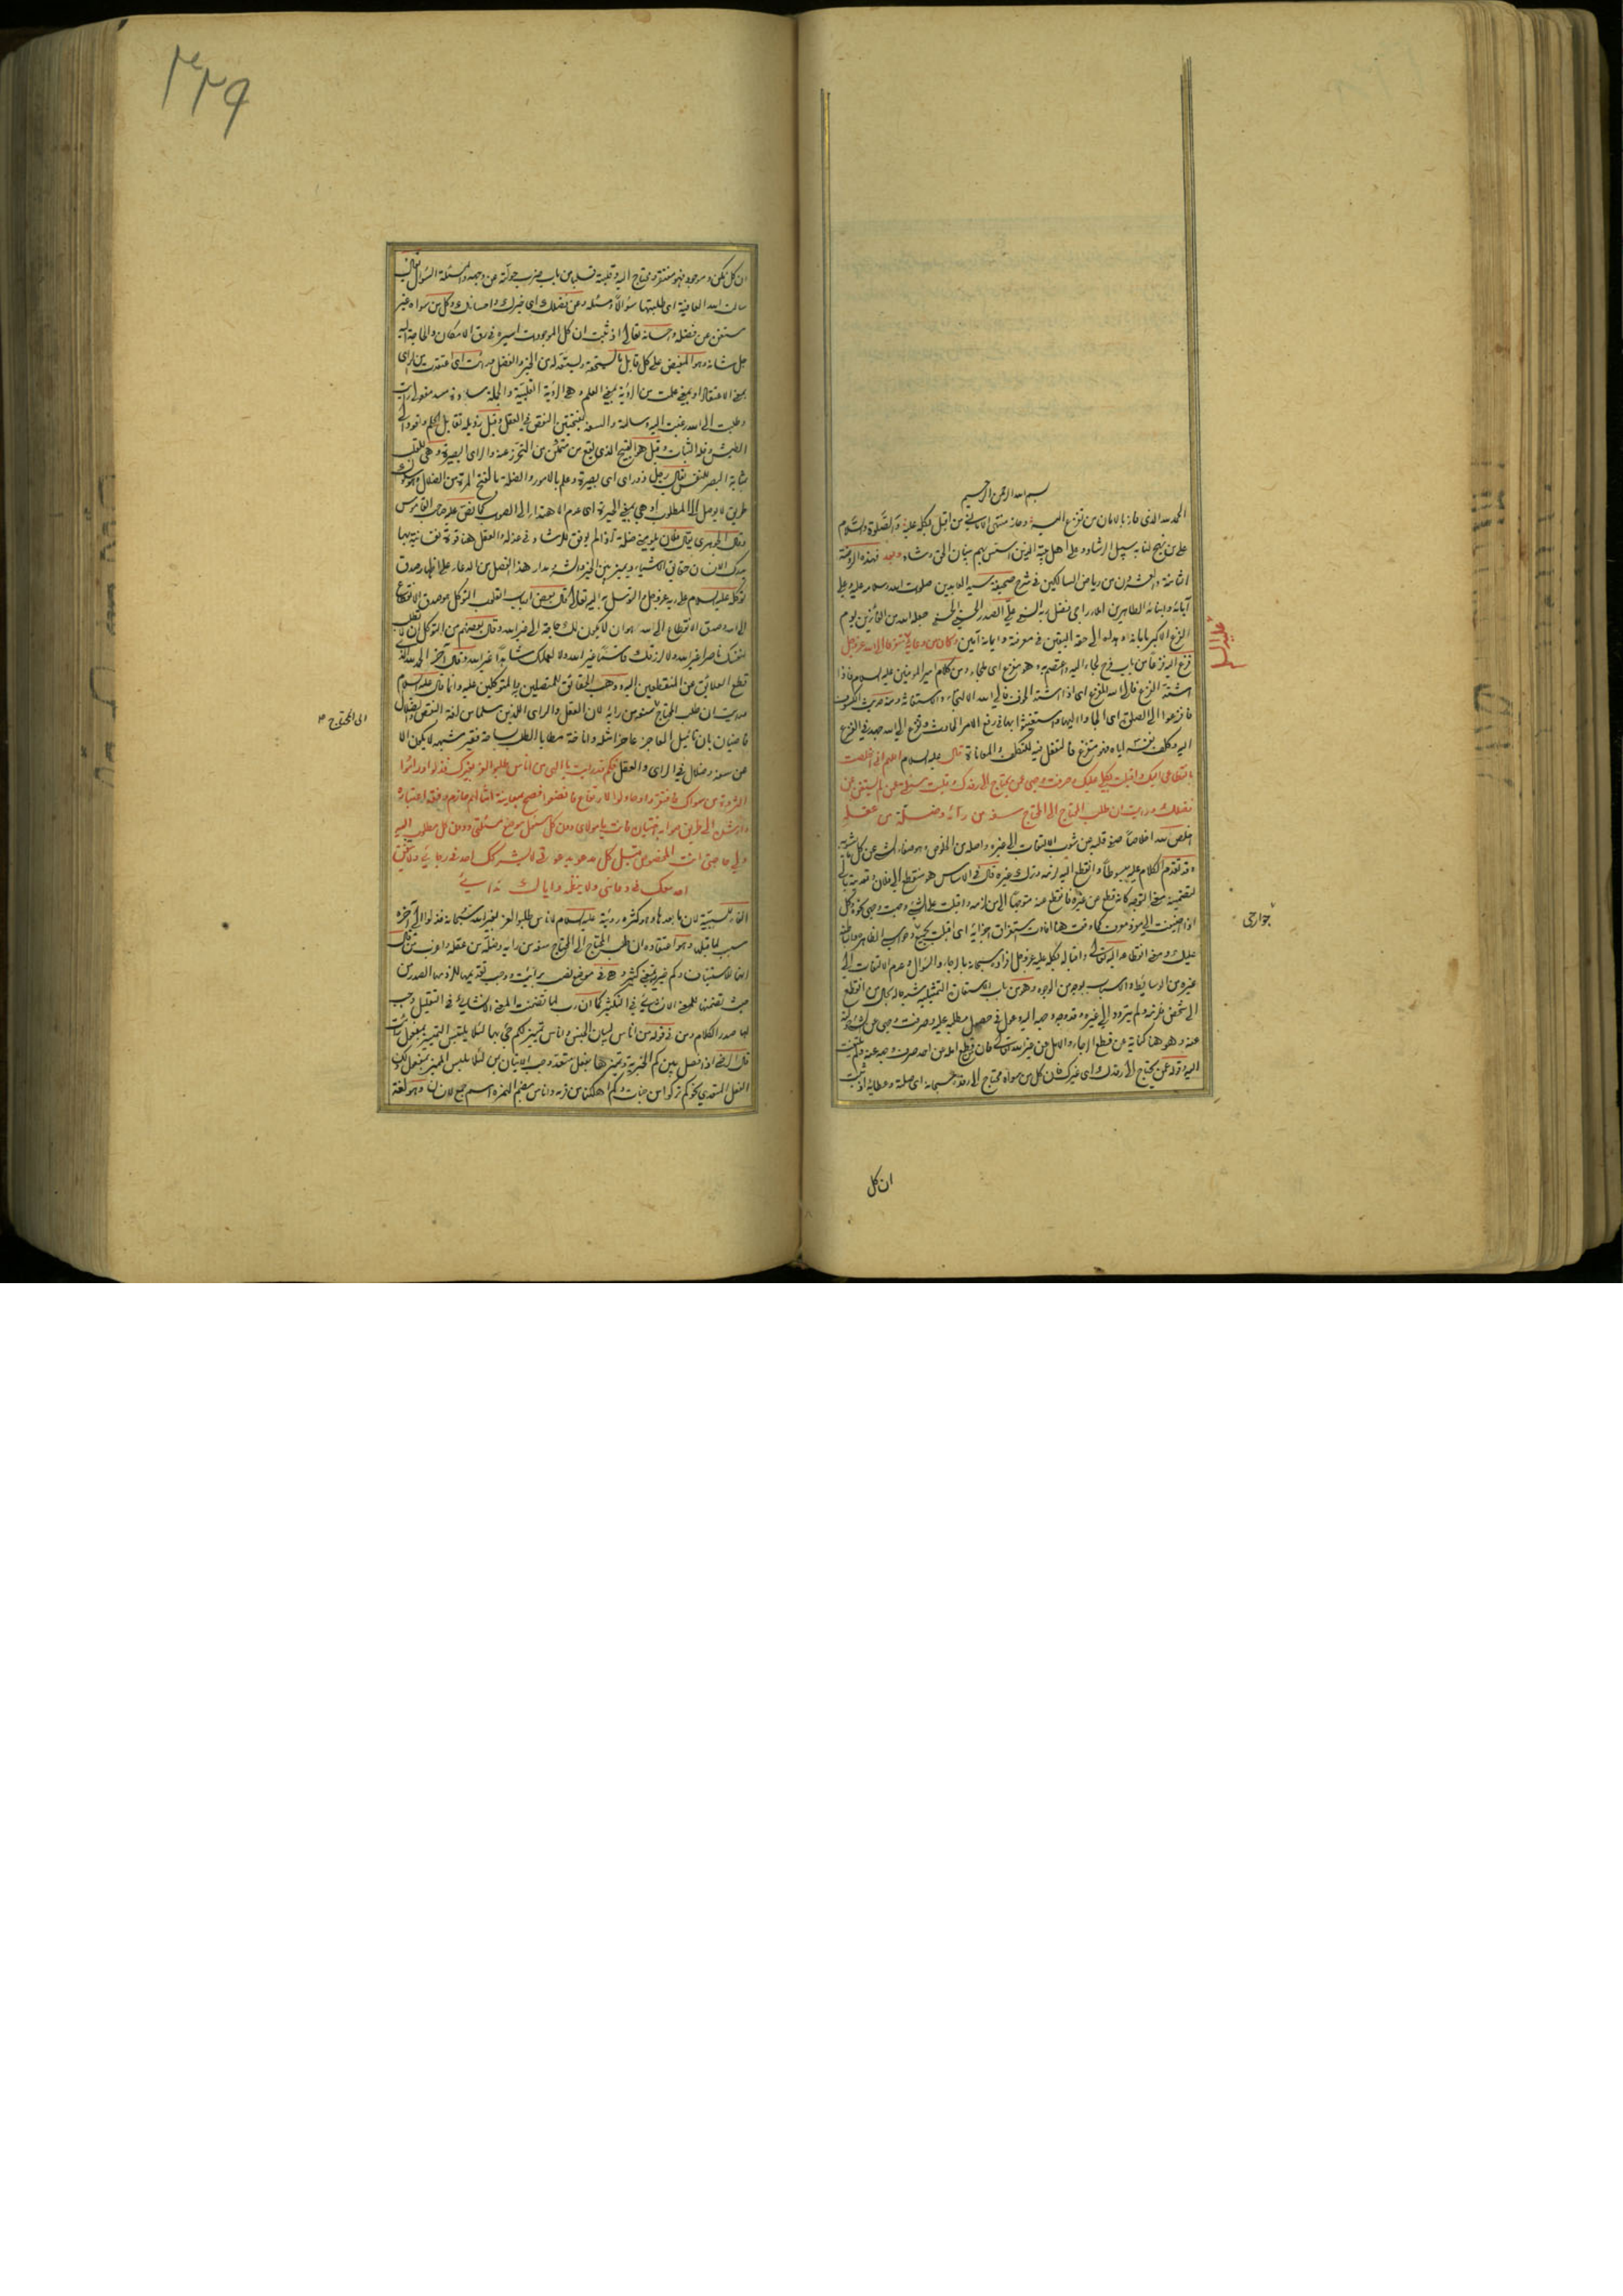 بسم الله الرحمن الرحيم
الحمد لله الذى فاز بالامان من فزع اليه وحاز منتهى الامانى من اقبل بكله عليه والصلوة والسلام
على من نهج لنا به سبيل الارشاد وعلى اهل بيته الذين اسس بهم بنيان الحق وشاد وبعد فهذه الروضة
الثامنة والعشرون من رياض السالكين فى شرح صحيفة سيد العابدين صلوات الله وسلامه عليه وعلى
آبائه وابنائه الطاهرين املاء راجى فضل ربه السنى على الصدر الحسينى الحسنى جعله الله من الفائزين يوم
الفزع الاكبر بامانه وهداه الى حقه اليقين فى معرفته وايمانه آمين وكان من دعائه متفزعا الى الله عز وجل
عليه السلام
فزع اليه فزعا من باب فرح لجاء اليه واعتصم به وهو مفزع اى ملجاء ومن كلام امير المومنين عليه السلام فاذا
اشتد الفزع فالى الله المفزع اى اذا اشتد الخوف فالى الله الالتجاء والاستغاثة ومنه حديث الكسوف
فافزعوا الى الصلوة اى الجاوا اليها واستغيثوا بها فى رفع الامر الحادث وتفزع الى الله جهد فى الفزع
اليه وكلف نفسه اياه فهو متفزع فالتفعل فيه للتكلف والمعاناة قال عليه السلام اللهم انى اخلصت
بانقطاعى اليك واقبلت بكلى عليك وصرفت وجهى عمن يحتاج الى رفدك وقلبت مسئلتى عمن لم يستغن عن
فضلك ورايت ان طلب المحتاج الى المحتاج سفه من رأيه وضلة من عقله
اخلص لله اخلاصا صفى قلبه من شوب الالتفات الى غيره واصله من الخلوص وهو صفاء الشئ عن كل شائبة
وقد تقدم الكلام عليه مبسوطا وانقطع اليه لزمه وترك غيره قال فى الاساس هو منقطع الى فلان وتعديته بالى
لتضمينه معنى التوجه كانه قطع عن غيره فانقطع عنه متوجها الى من لزمه واقبلت على الشئ وجهت وجهى نحوه وكل
اذا اضيفت الى مفرد معرف كما وقعت هنا افادت استغراق اجزائه اى اقبلت بجميع وحواسى الظاهرة والباطنة
جوارحى
عليك ومعنى انقطاعه اليه تعالى واقباله بكله عليه عز وجل افراده سبحانه بالرجاء والسؤال وعدم الالتفات الى
غيره من الوسائط والاسباب بوجه من الوجوه وهو من باب الاستعارة التمثيلية شبه حاله بحال من انقطع
الى شخص فلزمه ولم يتردد الى غيره وقد وجه وجهه اليه وعول فى حصول مطلبه عليه وصرفت وجهى عن الشئ
عنه وهو هنا كناية عن قطع الرجاء والامل من غير الله تعالى فان من قطع امله من احد صرف وجهه عنه ولم يلتفت
اليه وقوله عمن يحتاج الى رفدك اى غيرك فان كل من سواه محتاج الى رفده سبحانه اى صلته وعطائه اذ ثبت
ان كل
ان كل ممكن وموجود فهو مفتقر ومحتاج اليه وقلبته قلبا من باب ضرب حولته عن وجهه والمسئلة السؤال يقال
سالت الله العافية اى طلبتها سؤالا ومسئلة وعن فضلك اى خيرك واحسانك وكل من سواه غير
مستغن عن فضله واحسانه تعالى اذ ثبت ان كل الموجودات اسيرة فى رق الامكان والحاجة اليه
جل شانه وهو المفيض على كل قابل ما يستحقه ويستعد له من الخير والفضل ورأيت اى اعتقدت من الراى
بمعنى الاعتقاد او بمعنى علمت من الرؤية بمعنى العلم وهى الرؤية القلبية والجملة سادة مسد مفعولى رايت
وطلبت الى الله رغبت اليه وسالته والسفه بفتحتين النقص فى العقل وقيل رذيلة تقابل الحلم وتعود الى
الطيش وقلة الثبات وقيل هو القبيح الذى يقع من متمكن من التحرز عنه والراى البصيرة وهى للقلب
بمثابة البصر للنفس يقال رجل ذو راى اى بصيرة وعلم بالامور والضلة بالفتح المرة من الضلال وهو سلوك
طريق لا يوصل الى المطلوب او هى بمعنى الحيرة اى عدم الاهتداء الى الصواب كما نص عليه صاحب القاموس
وقال الجوهرى يقال فلان يلومنى ضلة اذا لم يوفق للرشاد فى عذله والعقل هنا قوة نفسانية بها
يدرك الانسان حقائق الاشياء ويميز بين الخير والشر ومدار هذا الفصل من الدعاء على اظهار صدق
توكله عليه السلام على ربه عز وجل والتوسل به اليه تعالى قال بعض ارباب القلوب التوكل هو صدق الانقطاع
الى الله وصدق الانقطاع الى الله هو ان لا يكون لك حاجة الى غير الله وقال بعضهم من التوكل ان لا تطلب
لنفسك ناصرا غير الله ولا لرزقك قاسما غير الله ولا لعملك شاهدا غير الله وقال آخر الحمد لله الذى
قطع العلائق عن المنقطعين اليه ووهب الحقائق للمتصلين به المتوكلين عليه وانما قال عليه السلام
ورايت ان طلب المحتاج سفه من رايه لان العقل والراى اللذين سلما من افة النقص والضلال
الى المحتاج
قاضيان بان تاميل العاجز عاجزا مثله واناخة مطايا الطلب بساحة فقير مشبهه لا يكون الا
عن سفه وضلال فى الراى والعقل فكم قد رايت يا الهى من اناس طلبوا العز بغيرك فذلوا وراموا
الثروة من سواك فافتقروا وحاولوا الارتفاع فاتضعوا فصح بمعاينة امثالهم حازم وفقه اعتباره
وارشده الى طريق صوابه اختياره فانت يا مولاى دون كل مسئول موضع مسئلتى ودون كل مطلوب اليه
ولى حاجتى انت المخصوص قبل كل مدعو بدعوتى لا يشركك احد فى رجائى ولا يتفق
احد معك فى دعائى ولا ينظمه واياك ندائى
الفاء للسببية لان ما بعدها وهو كثرة رؤيته عليه السلام لاناس طلبوا العز بغير الله سبحانه فذلوا الى آخره
سبب لما قبلها وهو اعتقاده ان طلب المحتاج الى المحتاج سفه من رايه وضلة من عقله واعرب من قال
انها للاستيناف وكم خبرية بمعنى كثير وهى فى موضع نصب برايت ووجب تقديمها للزومها الصدر من
حيث تضمنها للمعنى الانشائى فى التكثير كما ان رب لما تضمنت المعنى الانشائى فى التقليل وجب
لها صدر الكلام ومن فى قوله من اناس لبيان الجنس واناس تمييز لكم جئ بها لئلا يلتبس التمييز بمفعول رايت
قال الرضى اذا فصل بين كم الخبرية ومميزها بفعل متعد وجب الاتيان بمن لئلا يلتبس المميز بمفعول ذلك
الفعل المتعدى نحو كم تركوا من جنات وكم اهلكنا من قرية واناس بضم الهمزة اسم جمع لانسان وهو لغة